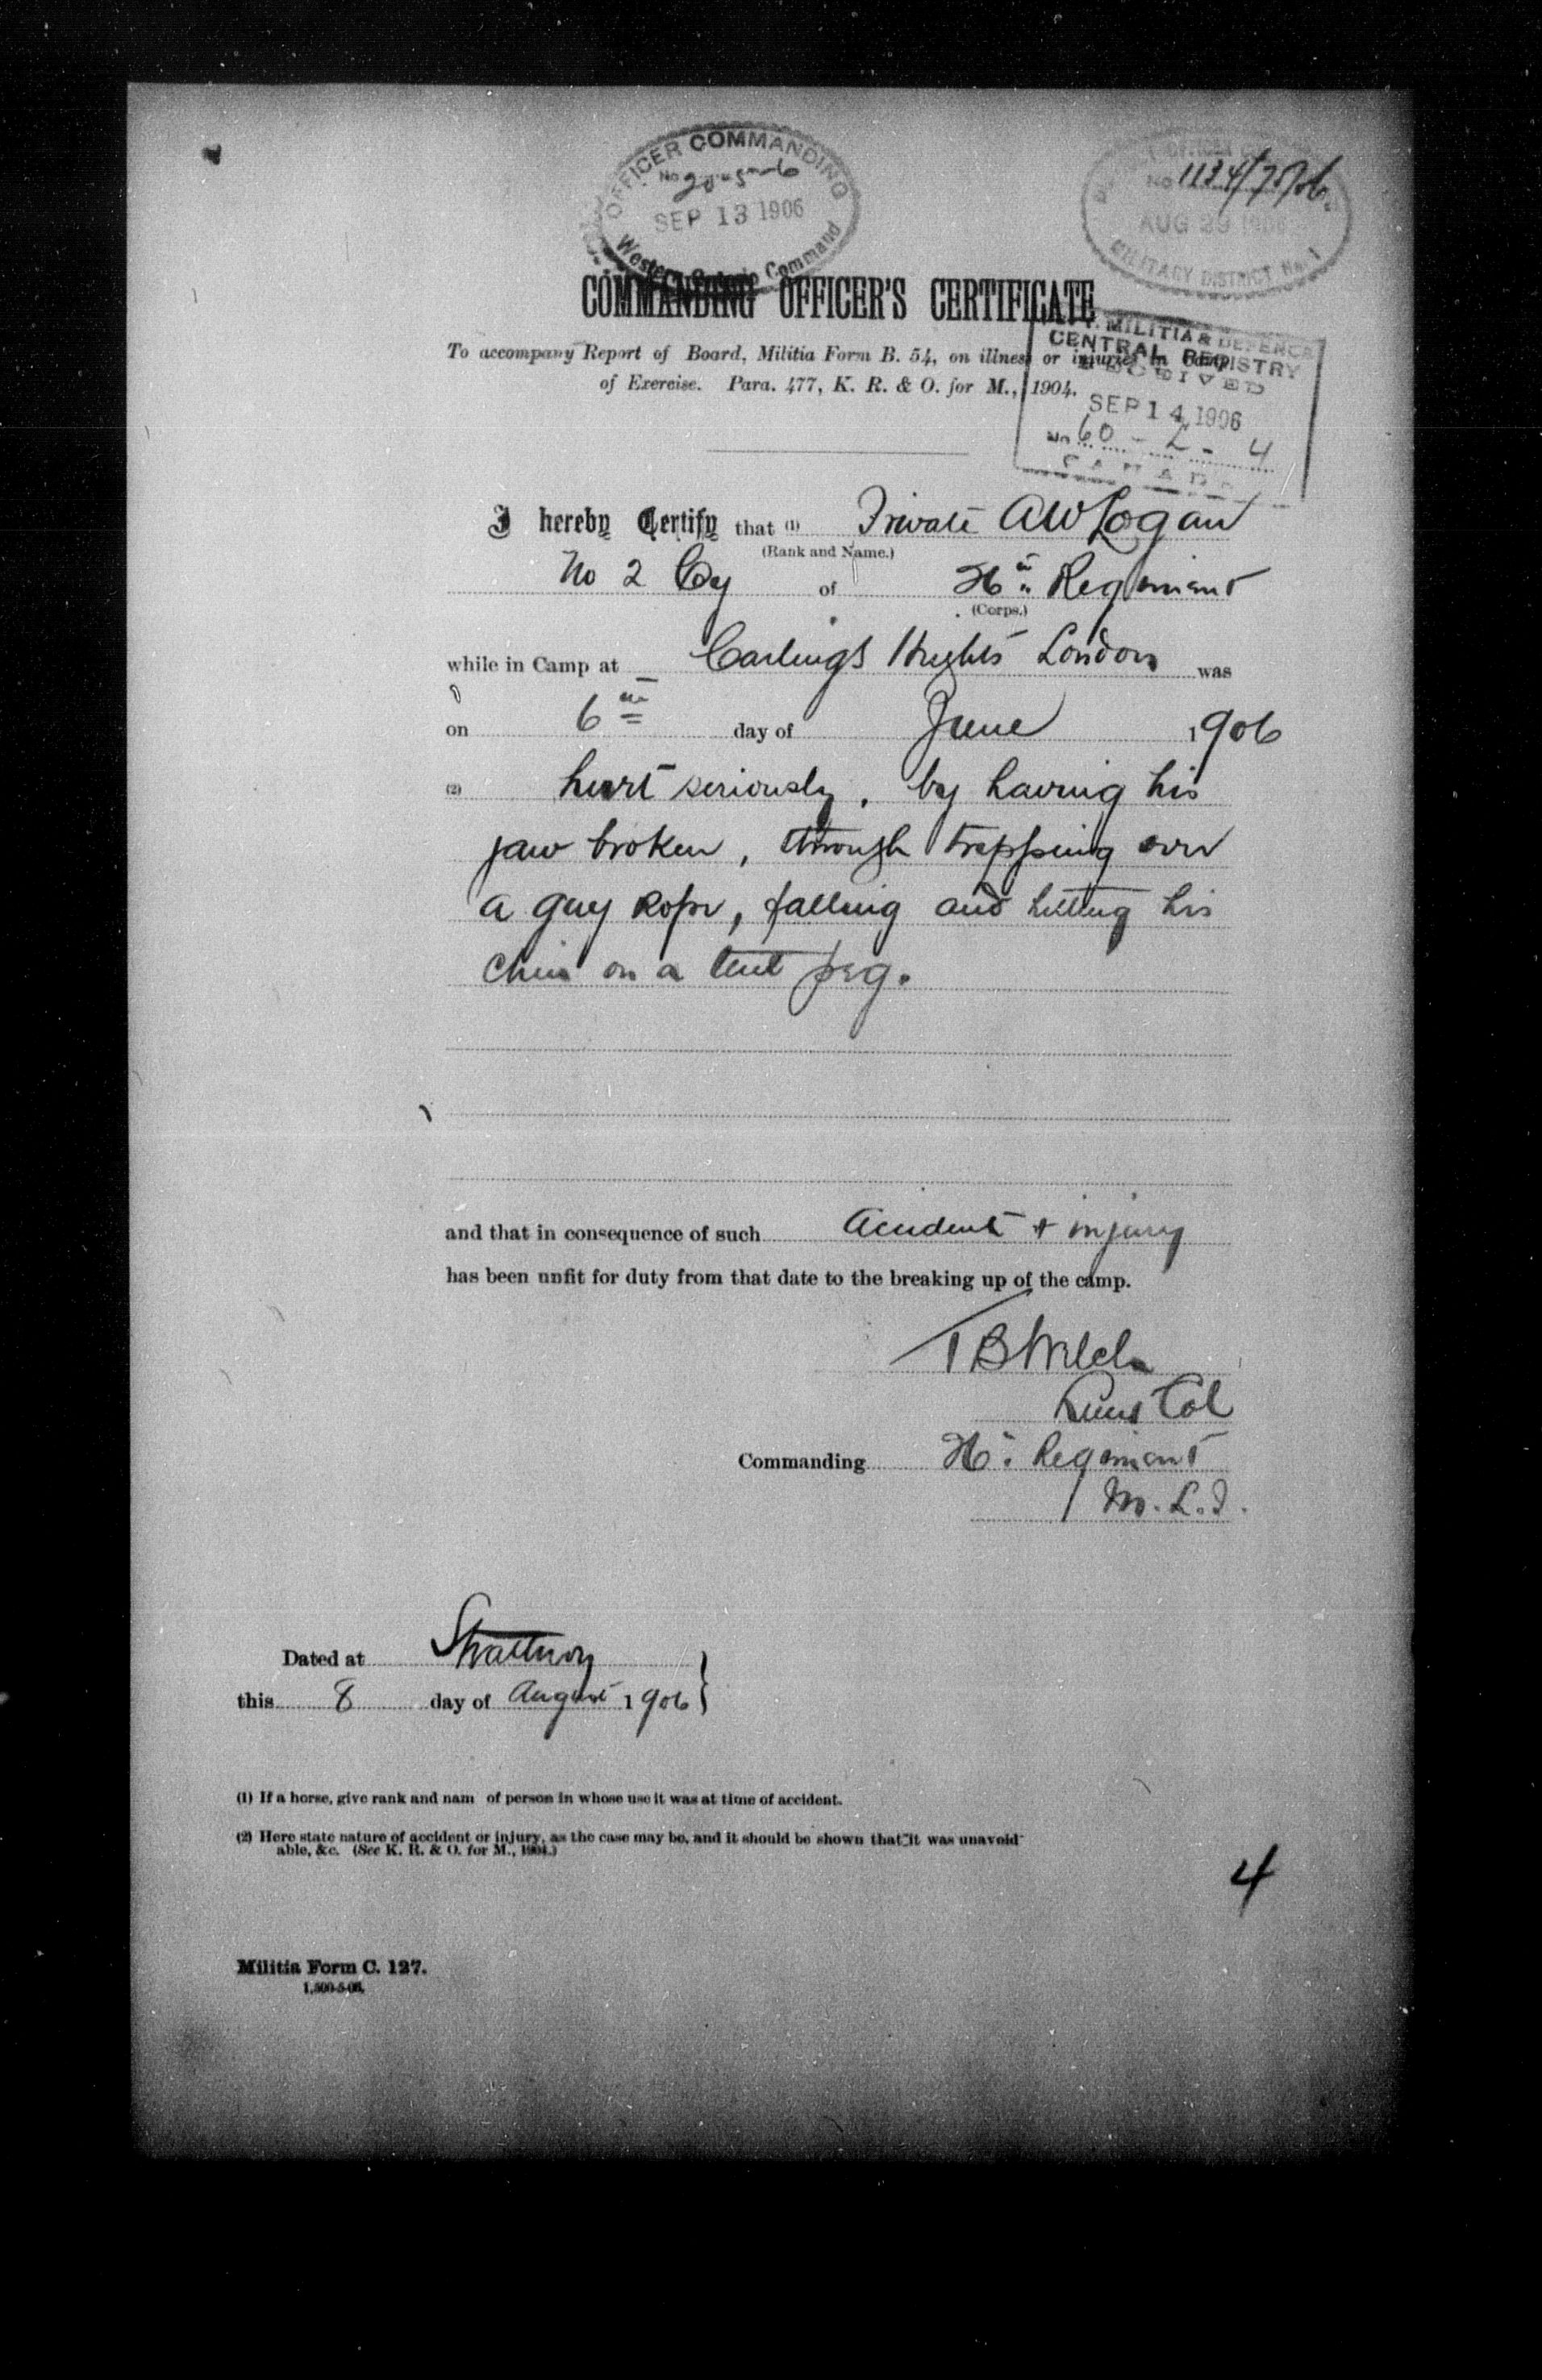 OFFICER COMMANDING
No 20-5-6
SEP 13 1906
Western Ontario Command
OFFICER
No 1134/75/06.
AUG 29 1906
MILITARY DISTRICT No. 1
COMMANDING OFFICER'S CERTIFICATE
MILITIA & DEFENCE
CENTRAL REGISTRY
RECEIVED
SEP 14 1906
No 60 - L - 4
CANADA
To accompany Report of Board, Militia Form B. 54, on illness or injuries in Camp
of Exercise. Para. 477, K. R. & O. for M., 1904.
I hereby Certify that (1) Private A W Logan
(Rank and Name.)
No 2 Coy of 26th Regiment
(Corps.)
while in Camp at Carlings Heights London was
on 6th day of June 1906
(2) hurt seriously, by having his
jaw broken, through tripping over
a guy rope, falling and hitting his
chin on a tent peg.
and that in consequence of such Accident & injury
has been unfit for duty from that date to the breaking up of the camp.
T B Welch
Lieut Col
Commanding 26. Regiment
M.L.I.
Dated at Strathroy
this 8 day of August 1906
(1) If a horse, give rank and nam of person in whose use it was at time of accident.
(2) Here state nature of accident or injury, as the case may be, and it should be shown that it was unavoid-
able, &c. (See K. R. & O. for M., 1904.)
4
Militia Form C. 127.
1,500-5-06.